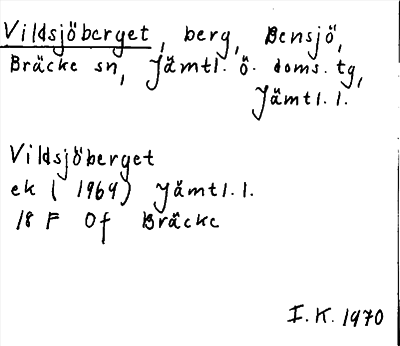 Vildsjöberget, berg, Bensjö,
Bräcke sn, Jämtl. ö. doms. tg,
Jämtl. l.
Vildsjöberget
ek (1969) Jämtl. l.
18 F 0f Bräcke
I. K. 1970